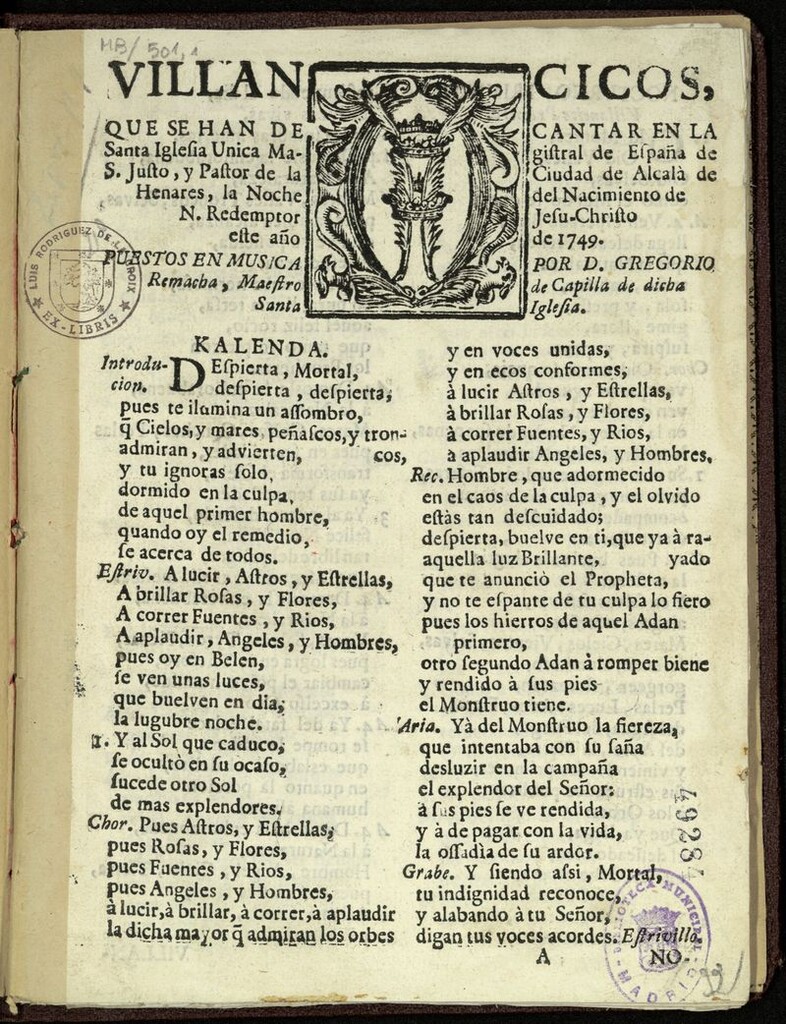 MB/ 501,1
VILLAN CICOS,
QUE SE HAN DE CANTAR EN LA
Santa Iglesia Unica Ma- gistral de España de
S. Justo, y Pastor de la Ciudad de Alcalà de
Henares, la Noche del Nacimiento de
N. Redemptor Jesu-Christo
este año de 1749.
PUESTOS EN MUSICA POR D. GREGORIO
Remacha, Maestro de Capilla de dicha
Santa Iglesia.
LUIS RODRIGUEZ DE LA CROIX
EX-LIBRIS
KALENDA.
Introdu- DEspierta, Mortal,
cion. despierta, despierta;
pues te ilumina un assombro,
q̃ Cielos, y mares, peñascos, y tron-
admiran, y advierten, cos,
y tu ignoras solo,
dormido en la culpa,
de aquel primer hombre,
quando oy el remedio,
se acerca de todos.
Estriv. A lucir, Astros, y Estrellas,
A brillar Rosas, y Flores,
A correr Fuentes, y Rios,
A aplaudir, Angeles, y Hombres,
pues oy en Belen,
se ven unas luces,
que buelven en dia,
la lugubre noche.
1. Y al Sol que caduco,
se ocultò en su ocaso,
sucede otro Sol
de mas explendores.
Chor. Pues Astros, y Estrellas,
pues Rosas, y Flores,
pues Fuentes, y Rios,
pues Angeles, y Hombres,
à lucir, à brillar, à correr, à aplaudir
la dicha mayor q̃ admiran los orbes
y en voces unidas,
y en ecos conformes,
à lucir Astros, y Estrellas,
à brillar Rosas, y Flores,
à correr Fuentes, y Rios,
à aplaudir Angeles, y Hombres.
Rec. Hombre, que adormecido
en el caos de la culpa, y el olvido
estàs tan descuidado;
despierta, buelve en ti, que ya à ra-
aquella luz Brillante, yado
que te anunciò el Propheta,
y no te espante de tu culpa lo fiero
pues los hierros de aquel Adan
primero,
otro segundo Adan à romper biene
y rendido à sus pies
el Monstruo tiene.
Aria. Yà del Monstruo la fiereza,
que intentaba con su saña
desluzir en la campaña
el explendor del Señor:
à sus pies se ve rendida,
y à de pagar con la vida,
la ossadìa de su ardor.
Grabe. Y siendo assi, Mortal,
tu indignidad reconoce,
y alabando à tu Señor,
digan tus voces acordes. Estrivillo.
A NO-
BIBLIOTECA MUNICIPAL
MADRID